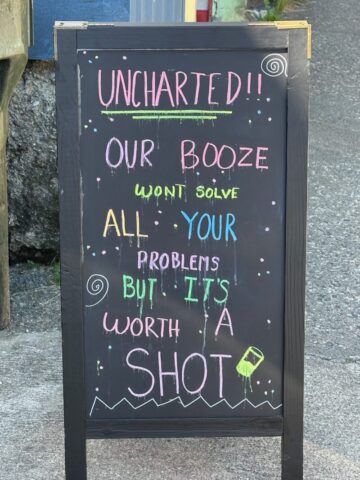 UNCHARTED!!
OUR BOOZE
WONT SOLVE
ALL YOUR
PROBLEMS
BUT IT'S
WORTH A
SHOT